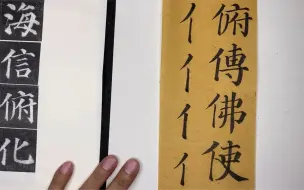 俯傳佛使
亻亻亻亻
海信俯化